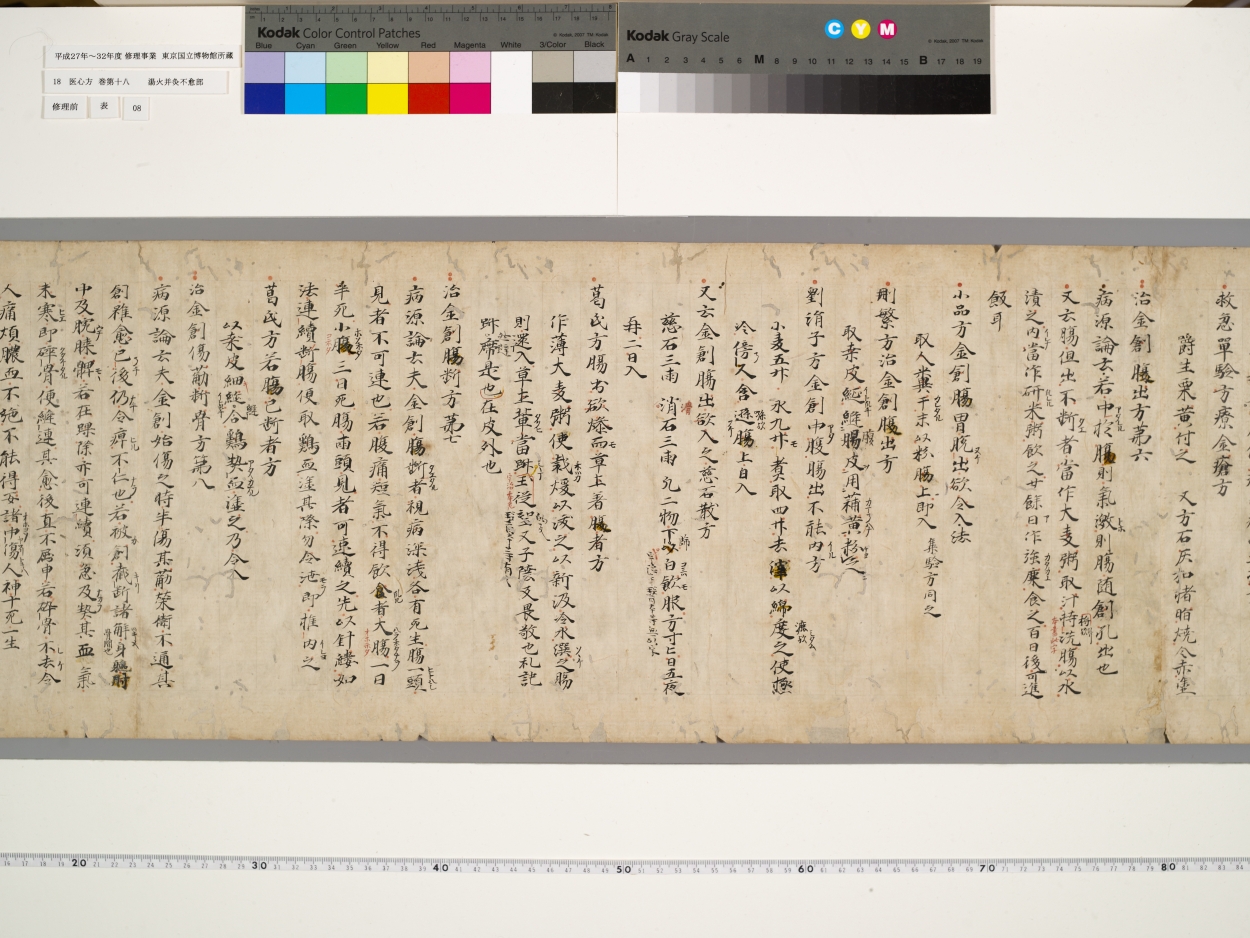 平成27年～32年度 修理事業 東京国立博物館所蔵
18 医心方 巻第十八 湯火并灸不愈部
修理前 表 08
Kodak Color Control Patches
Blue Cyan Green Yellow Red Magenta White 3/Color Black
© Kodak, 2007 TM: Kodak
Kodak Gray Scale
C Y M
© Kodak, 2007 TM: Kodak
A 1 2 3 4 5 6 M 8 9 10 11 12 13 14 15 B 17 18 19
救急單驗方療金瘡方
爵生栗黄付之 又方石灰和猪脂燒令赤塗
治金創腸出方第六
病源論云若中於腸則氣激則腸随創孔出也
又云腸但出不断者當作大麦粥取汁持洗腸以水
漬之内當作研米粥飲之廿餘日作強糜食之百日後可進
飯耳
小品方金創腸胃脱出欲令入法
取人糞干末以粉腸上即入 集驗方同之
刪繁方治金創腸出方
取桑皮綖縫腸皮用蒲黄粉之
劉涓子方金創中腹腸出不能内方
小麦五升 水九升煮取四升去滓以綿度之使極
冷傍人含𠾱腸上日入
又云金創腸出欲入之慈石散方
慈石三兩 消石三兩 凡二物下以白飲服方寸匕日五夜
再二日入
葛氏方腸出欲燥而草土著腸者方
作薄大麦粥使裁煖以泼之以新汲冷水潠之腸
則還入草土輩當
治金創腸断方第七
病源論云夫金創腸断者視病深浅各有死生腸一頭
見者不可連也若腹痛短氣不得飲食者大腸一日
半死小腹三日死腸兩頭見者可速續之先以針縷如
法連續断腸便取鷄血塗其際勿令泄即推内之
葛氏方若腸已断者方
以桑皮細縫合鷄熱血塗之乃令入
治金創傷筋断骨方第八
病源論云夫金創始傷之時半傷其筋榮衛不通其
創雖愈已後仍令痺不仁也若被創截断諸解身
中及腕膝髀若在踝際亦可連續須急及熱其血氣
未寒即碎骨便縫連其愈後直不屈申若碎骨不去令
人痛煩膿血不絶不能得安諸中傷人神十死一生
20 30 40 50 60 70 80